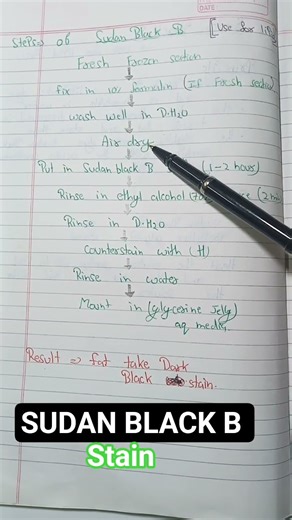 Steps => of Sudan Black B [Use for
Fresh Frozen section
fix in 10% formalin (If Fresh
wash well in D.H2O
Air dry
Put in Sudan black B (1-2 hours)
Rinse in ethyl alcohol (70
Rinse in D.H2O
Counterstain with (H)
Rinse in water
Mount in (Glycerine Jelly)
aq media
Result => fat take Dark
Black stain.
SUDAN BLACK B
Stain